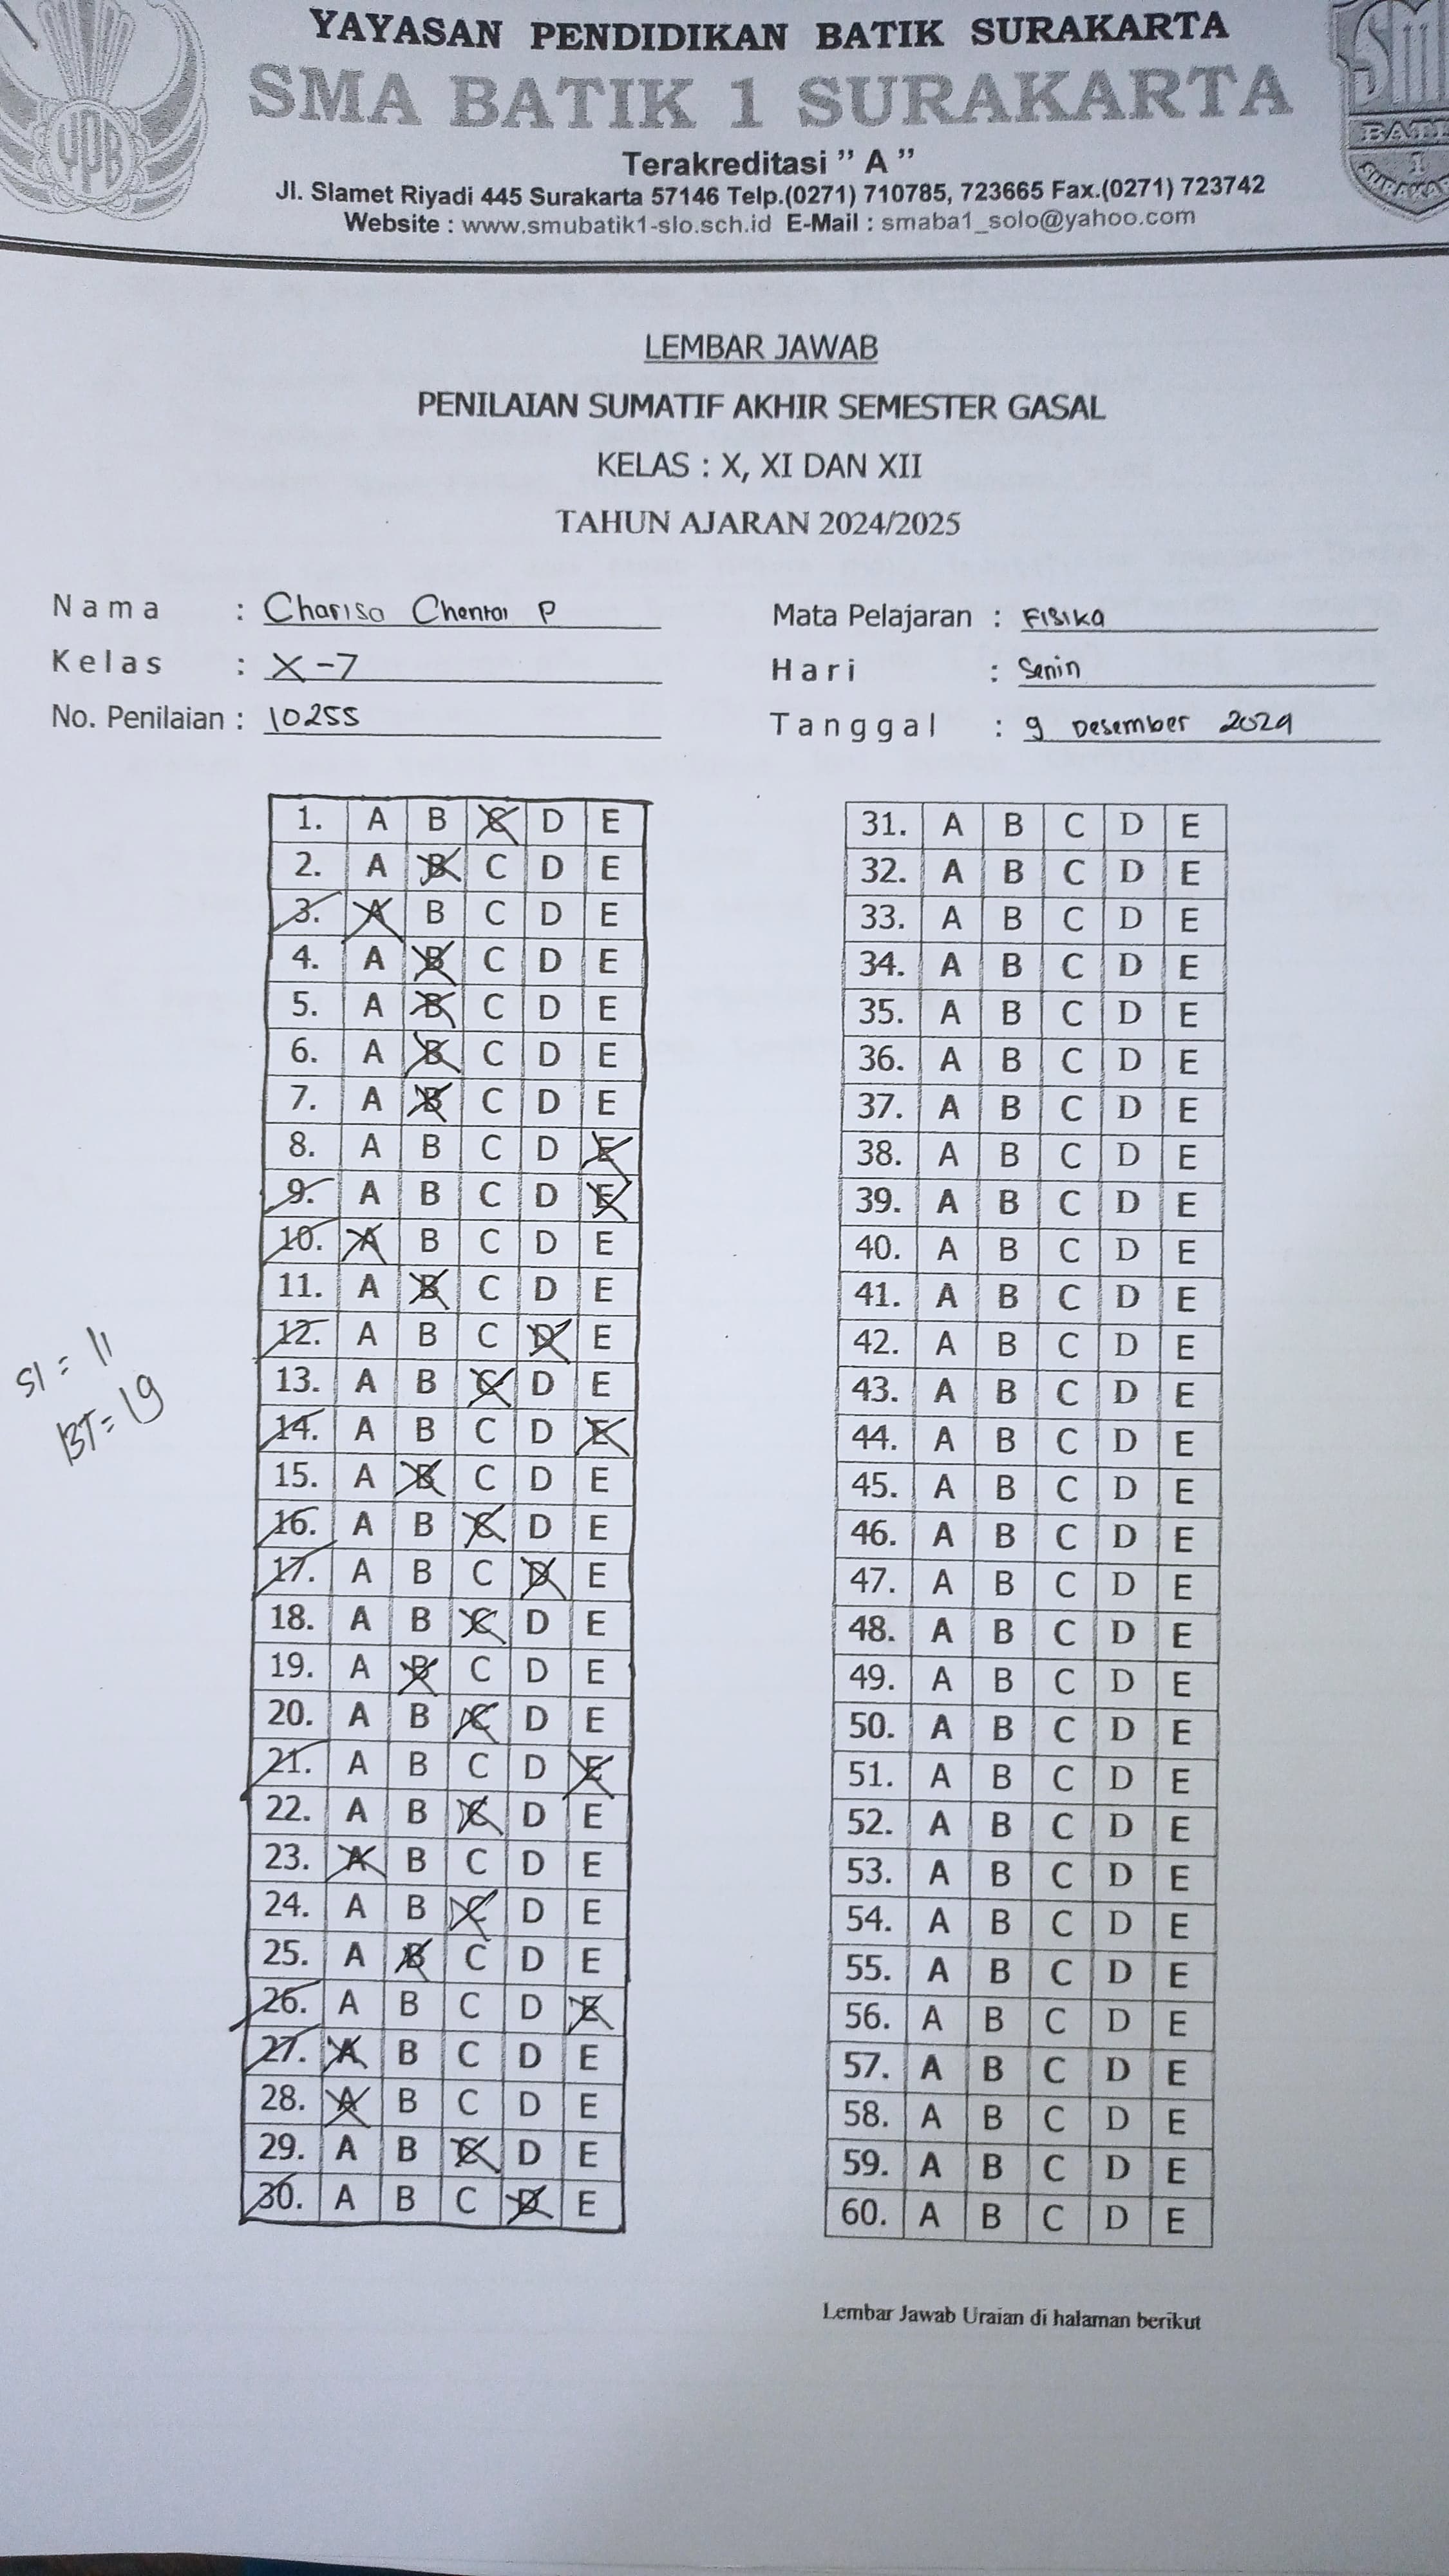 YAYASAN PENDIDIKAN BATIK SURAKARTA
SMA BATIK 1 SURAKARTA
Terakreditasi ” A ”
Jl. Slamet Riyadi 445 Surakarta 57146 Telp.(0271) 710785, 723665 Fax.(0271) 723742
Website : www.smubatik1-slo.sch.id E-Mail : smaba1_solo@yahoo.com
YPB
SM
BATI
1
SURAKAR
LEMBAR JAWAB
PENILAIAN SUMATIF AKHIR SEMESTER GASAL
KELAS : X, XI DAN XII
TAHUN AJARAN 2024/2025
Nama : Charisa P
Kelas : X-7
No. Penilaian : 10255
Mata Pelajaran : Fisika
Hari : Senin
Tanggal : 9 Desember 2024
1. A B C D E
2. A B C D E
3. A B C D E
4. A B C D E
5. A B C D E
6. A B C D E
7. A B C D E
8. A B C D E
9. A B C D E
10. A B C D E
11. A B C D E
12. A B C D E
13. A B C D E
14. A B C D E
15. A B C D E
16. A B C D E
17. A B C D E
18. A B C D E
19. A B C D E
20. A B C D E
21. A B C D E
22. A B C D E
23. A B C D E
24. A B C D E
25. A B C D E
26. A B C D E
27. A B C D E
28. A B C D E
29. A B C D E
30. A B C D E
Sl = 11
BT = 19
31. A B C D E
32. A B C D E
33. A B C D E
34. A B C D E
35. A B C D E
36. A B C D E
37. A B C D E
38. A B C D E
39. A B C D E
40. A B C D E
41. A B C D E
42. A B C D E
43. A B C D E
44. A B C D E
45. A B C D E
46. A B C D E
47. A B C D E
48. A B C D E
49. A B C D E
50. A B C D E
51. A B C D E
52. A B C D E
53. A B C D E
54. A B C D E
55. A B C D E
56. A B C D E
57. A B C D E
58. A B C D E
59. A B C D E
60. A B C D E
Lembar Jawab Uraian di halaman berikut